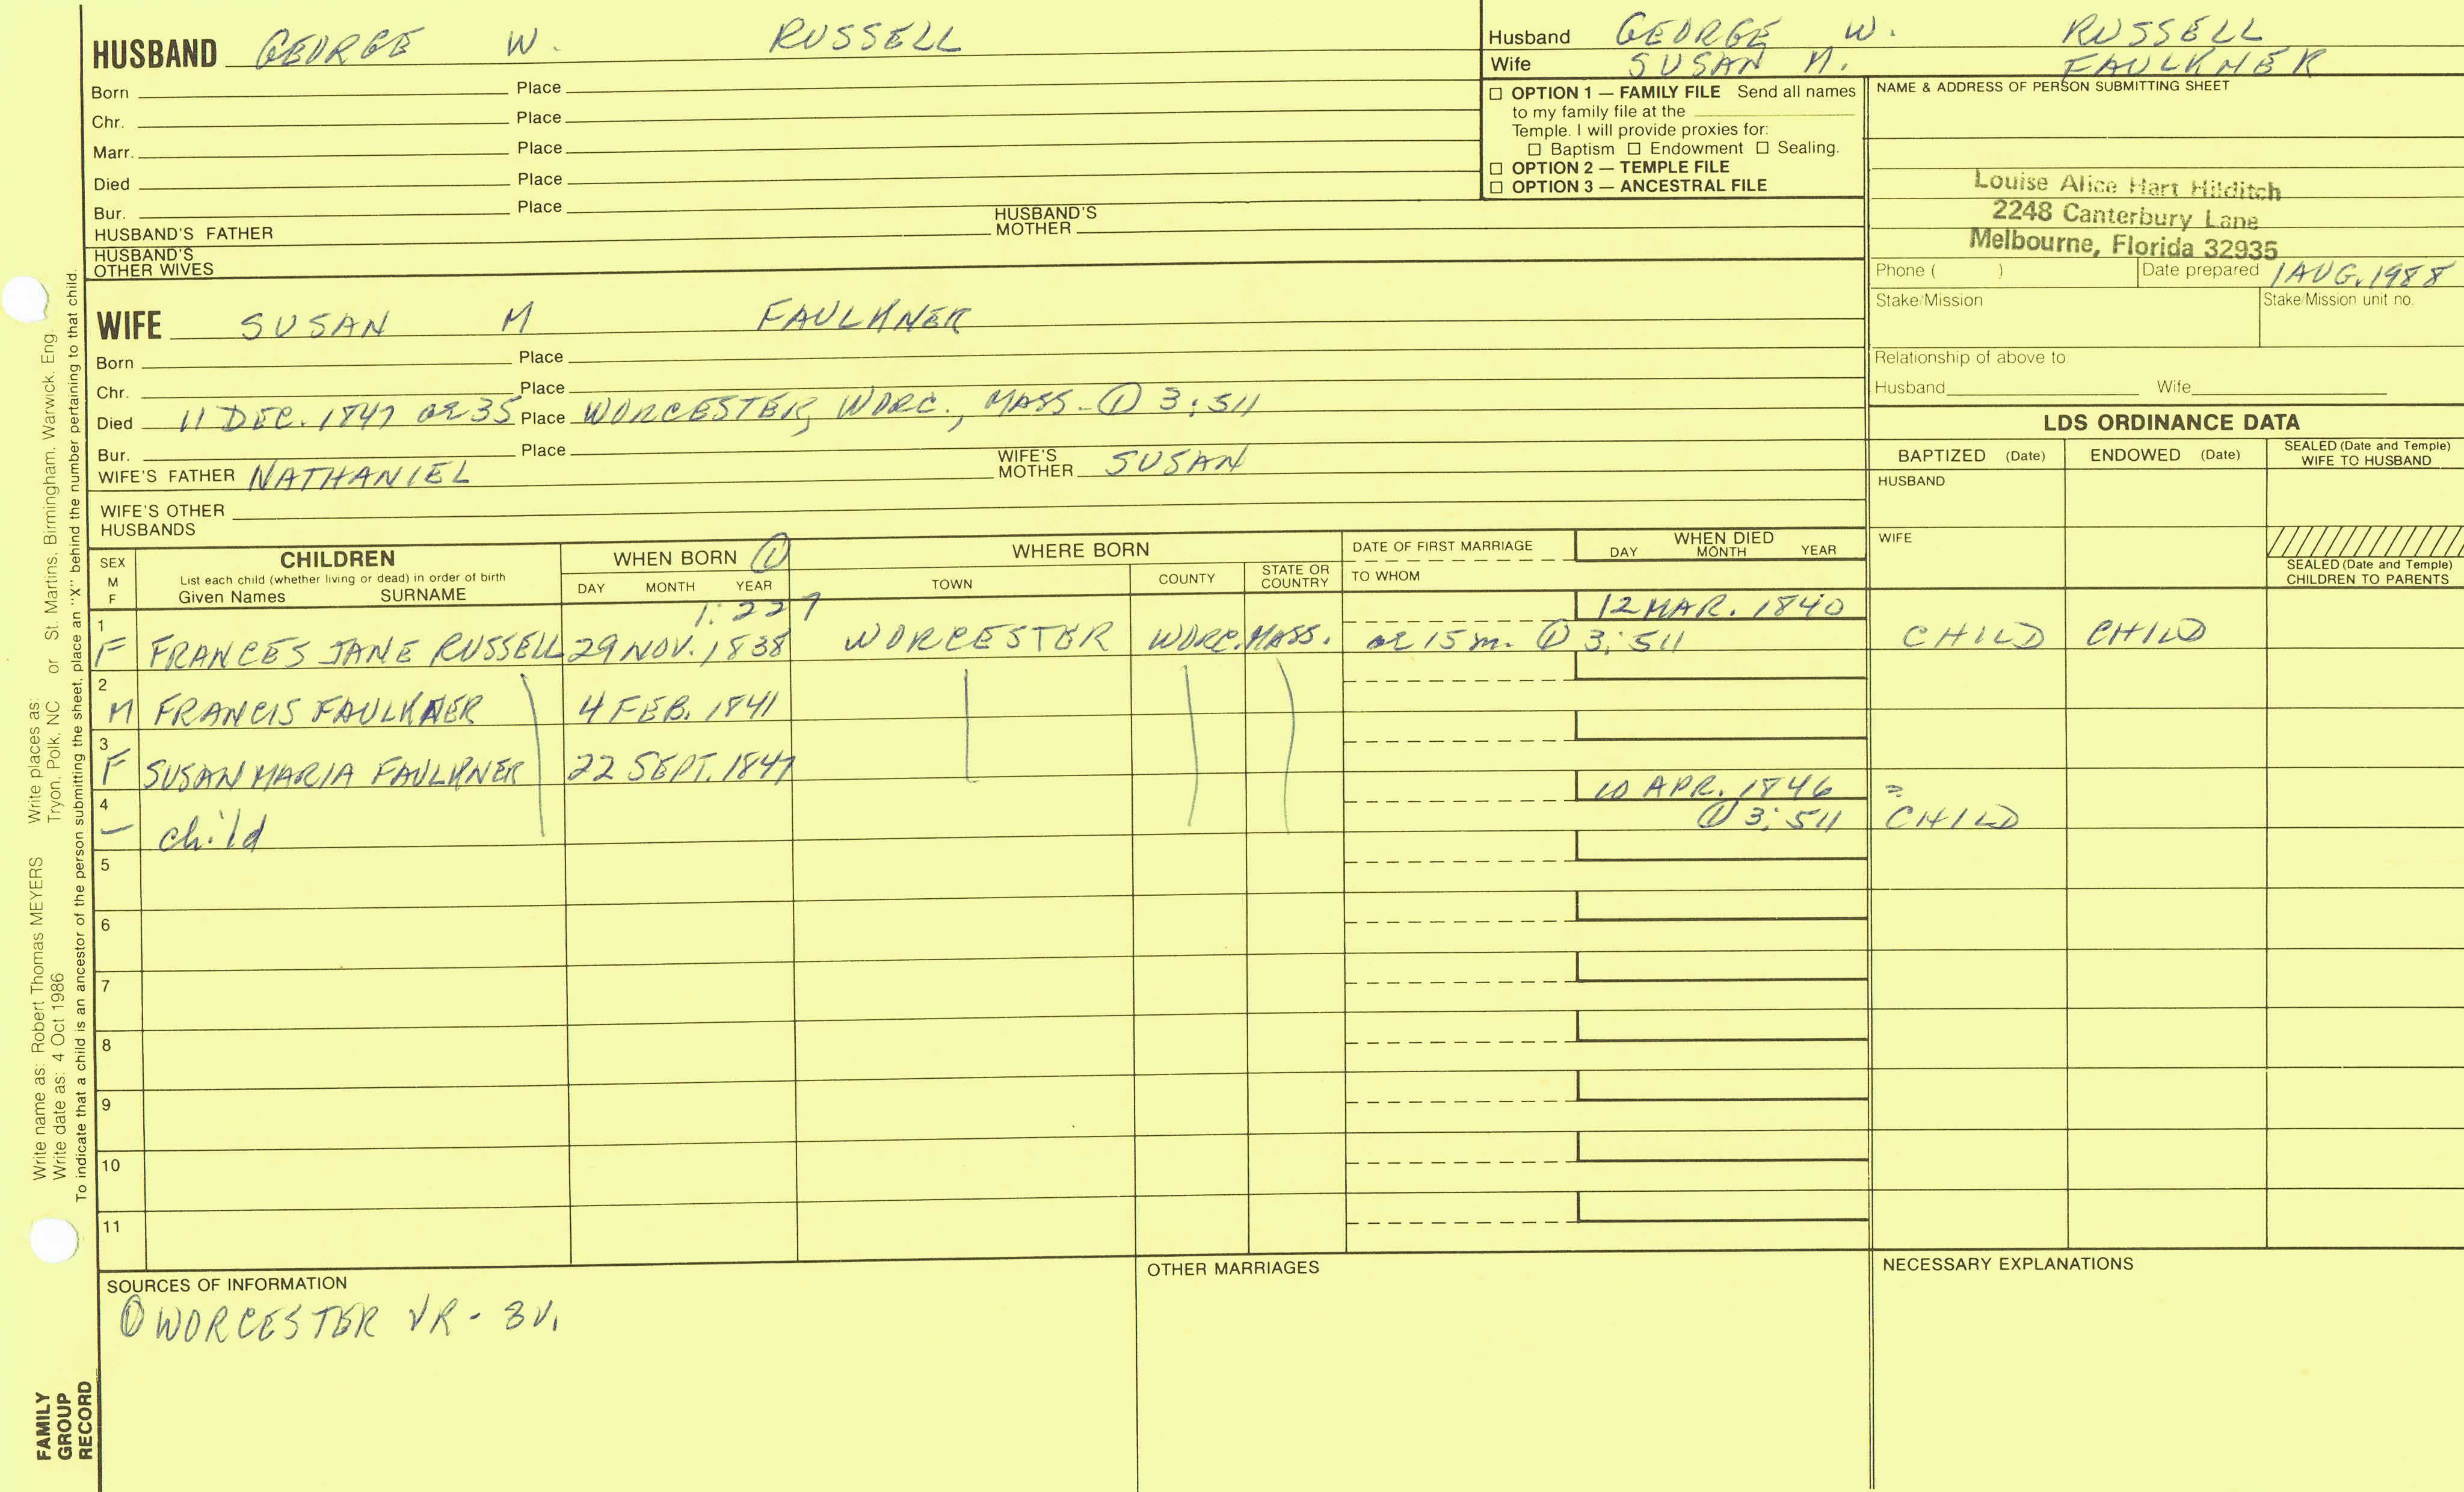 HUSBAND GEORGE W. RUSSELL
Born Place
Chr. Place
Marr. Place
Died Place
Bur. Place
HUSBAND'S FATHER HUSBAND'S MOTHER
HUSBAND'S OTHER WIVES
Husband GEORGE W. RUSSELL
Wife SUSAN M. FAULKNER
☐ OPTION 1 — FAMILY FILE Send all names
to my family file at the
Temple. I will provide proxies for:
☐ Baptism ☐ Endowment ☐ Sealing.
☐ OPTION 2 — TEMPLE FILE
☐ OPTION 3 — ANCESTRAL FILE
NAME & ADDRESS OF PERSON SUBMITTING SHEET
Louise Alice Hart Hilditch
2248 Canterbury Lane
Melbourne, Florida 32935
Phone ( ) Date prepared 1 AUG. 1988
Stake/Mission Stake/Mission unit no.
Relationship of above to
Husband Wife
WIFE SUSAN M FAULKNER
Born Place
Chr. Place
Died 11 DEC. 1847 ae 35 Place WORCESTER, WORC., MASS. ① 3:511
Bur. Place
WIFE'S FATHER NATHANIEL WIFE'S MOTHER SUSAN
WIFE'S OTHER HUSBANDS
LDS ORDINANCE DATA
BAPTIZED (Date) ENDOWED (Date) SEALED (Date and Temple) WIFE TO HUSBAND
HUSBAND
WIFE
SEALED (Date and Temple) CHILDREN TO PARENTS
SEX M F
CHILDREN
List each child (whether living or dead) in order of birth
Given Names SURNAME
WHEN BORN ①
DAY MONTH YEAR
WHERE BORN
TOWN COUNTY STATE OR COUNTRY
DATE OF FIRST MARRIAGE
TO WHOM
WHEN DIED
DAY MONTH YEAR
1 1:227 12 MAR. 1840
F FRANCES JANE RUSSELL 29 NOV. 1838 WORCESTER WORC. MASS. ae 15 m. ① 3:511 CHILD CHILD
2
M FRANCIS FAULKNER 4 FEB. 1841
3
F SUSAN MARIA FAULKNER 22 SEPT. 1847
4 10 APR. 1846
— child ① 3:511 CHILD
5
6
7
8
9
10
11
SOURCES OF INFORMATION
① WORCESTER VR - 3V.
OTHER MARRIAGES
NECESSARY EXPLANATIONS
Write name as: Robert Thomas MEYERS Write places as: Tryon, Polk, NC or St. Martins, Birmingham, Warwick, Eng
Write date as: 4 Oct 1986
To indicate that a child is an ancestor of the person submitting the sheet, place an "X" behind the number pertaining to that child.
FAMILY
GROUP
RECORD